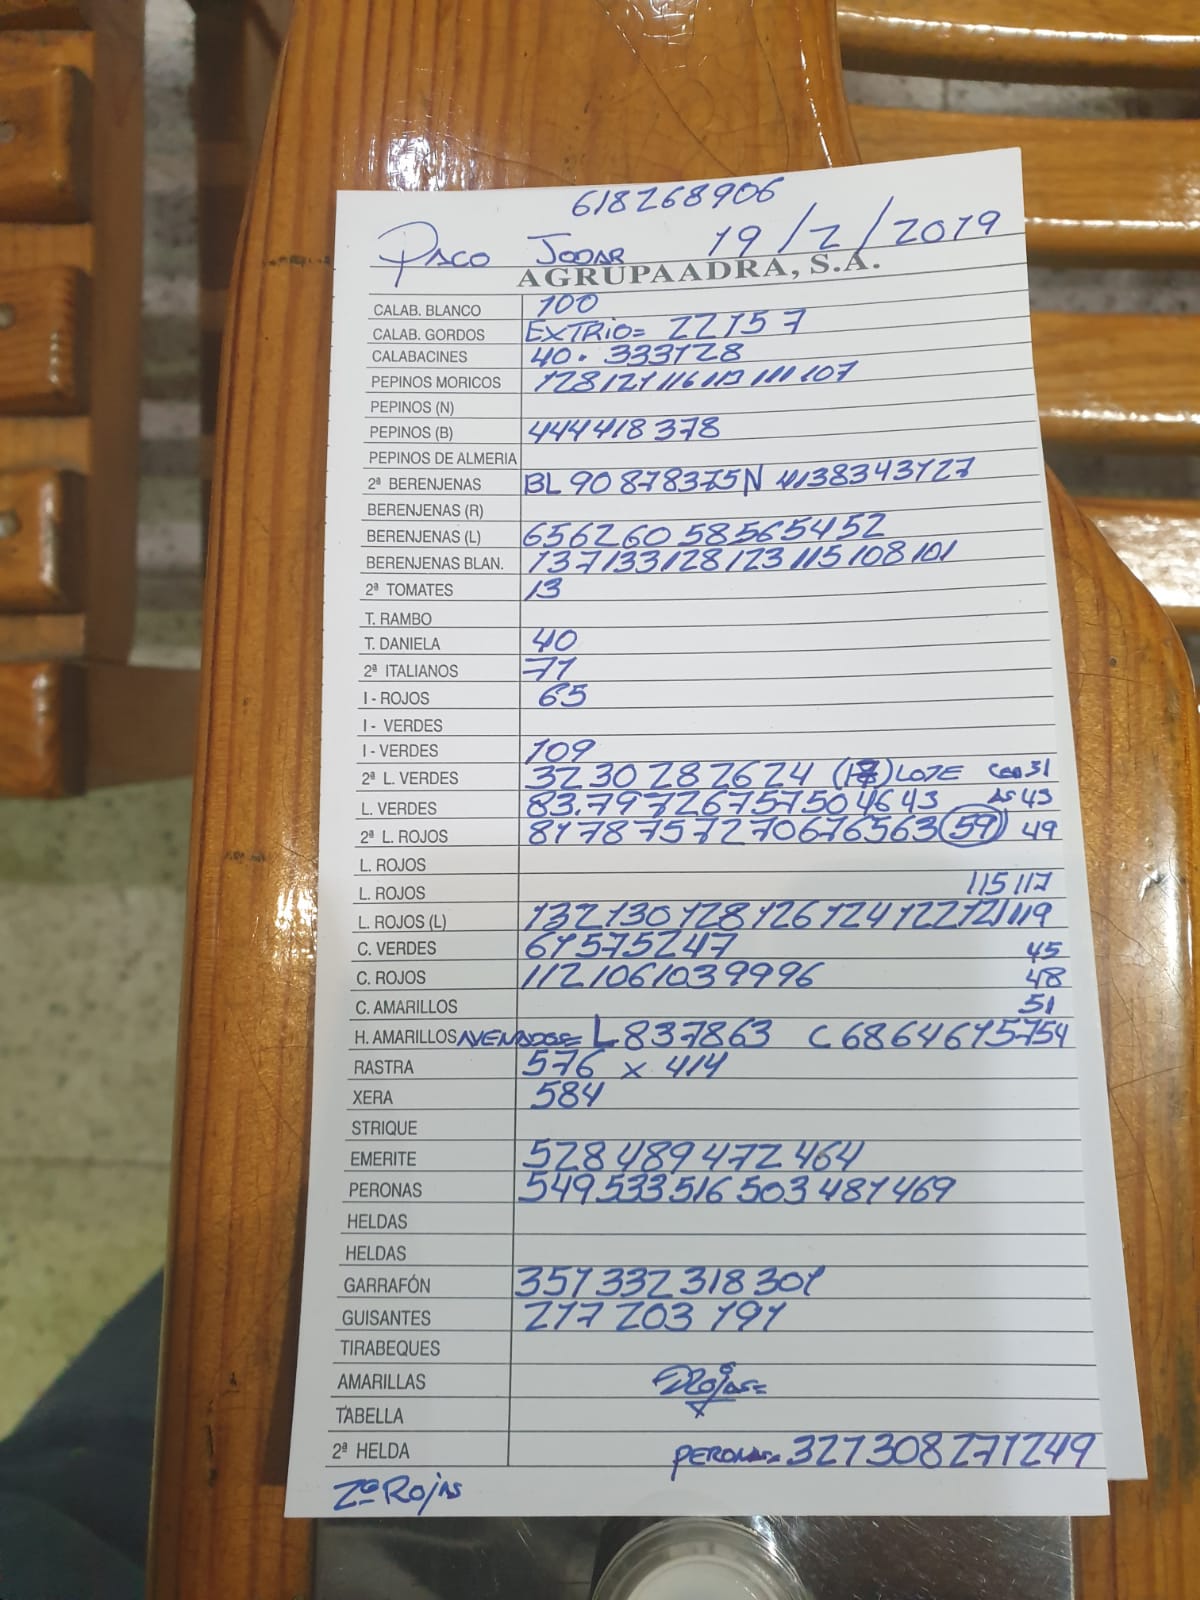 618268906
PACO JODAR 19/2/2019
AGRUPAADRA, S.A.
CALAB. BLANCO 100
CALAB. GORDOS EXTRIO= 22 15 7
CALABACINES 40. 333128
PEPINOS MORICOS 128 121 116 113 111 107
PEPINOS (N)
PEPINOS (B) 444 418 378
PEPINOS DE ALMERIA
2ª BERENJENAS BL 90 87 83 75 N 41 38 34 31 27
BERENJENAS (R)
BERENJENAS (L) 65 62 60 58 56 54 52
BERENJENAS BLAN. 137 133 128 123 115 108 101
2ª TOMATES 13
T. RAMBO
T. DANIELA 40
2ª ITALIANOS 71
I - ROJOS 65
I - VERDES
I - VERDES 109
2ª L. VERDES 32 30 28 26 24 LOTE 31
L. VERDES 83. 79 72 67 57 50 46 43 43
2ª L. ROJOS 81 78 75 72 70 67 65 63 59 49
L. ROJOS
L. ROJOS 115 117
L. ROJOS (L) 132 130 128 126 124 122 121 119
C. VERDES 61 57 52 47 45
C. ROJOS 112 106 103 99 96 48
C. AMARILLOS 51
H. AMARILLOS AVENADOS= L 83 78 63 C 68 64 61 57 54
RASTRA 576 x 414
XERA 584
STRIQUE
EMERITE 528 489 472 464
PERONAS 549 533 516 503 481 469
HELDAS
HELDAS
GARRAFÓN 351 332 318 301
GUISANTES 217 203 191
TIRABEQUES
AMARILLAS Rojas=
TABELLA x
2ª HELDA PERONAS= 327 308 271 249
2ª ROJAS